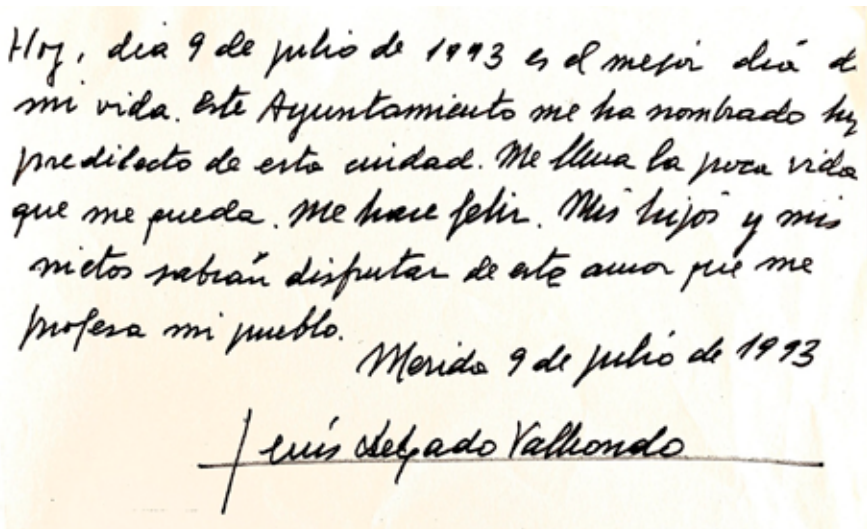 Hoy, dia 9 de julio de 1993 es el mejor diá d
mi vida. Este Ayuntamiento me ha nombrado hij
predilecto de esta ciudad. Me llena la poca vida
que me queda. Me hace feliz. Mis hijos y mis
nietos sabrán disfrutar de este amor que me
profesa mi pueblo.
Merida 9 de julio de 1993
Jesús Delgado Valhondo